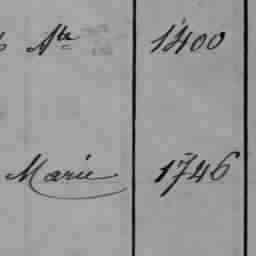 Nte 1400
Marie 1746